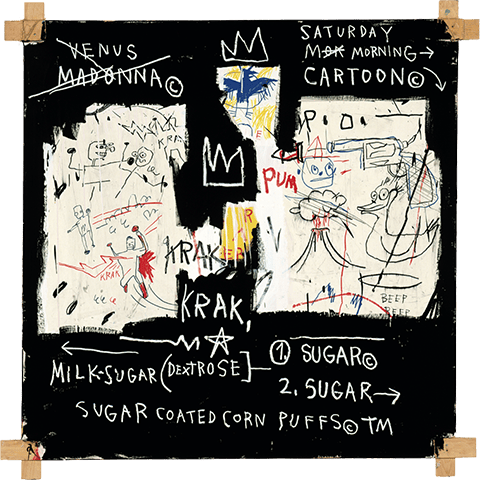 VENUS
MADONNA©
SATURDAY
MORNING→
CARTOON©
KRAK
P.O.
PUM
E
R
KRAK
KRAK
KRAK,
BEEP
BEEP
MILK-SUGAR (DEXTROSE]
1. SUGAR©
2. SUGAR→
SUGAR COATED CORN PUFFS© TM